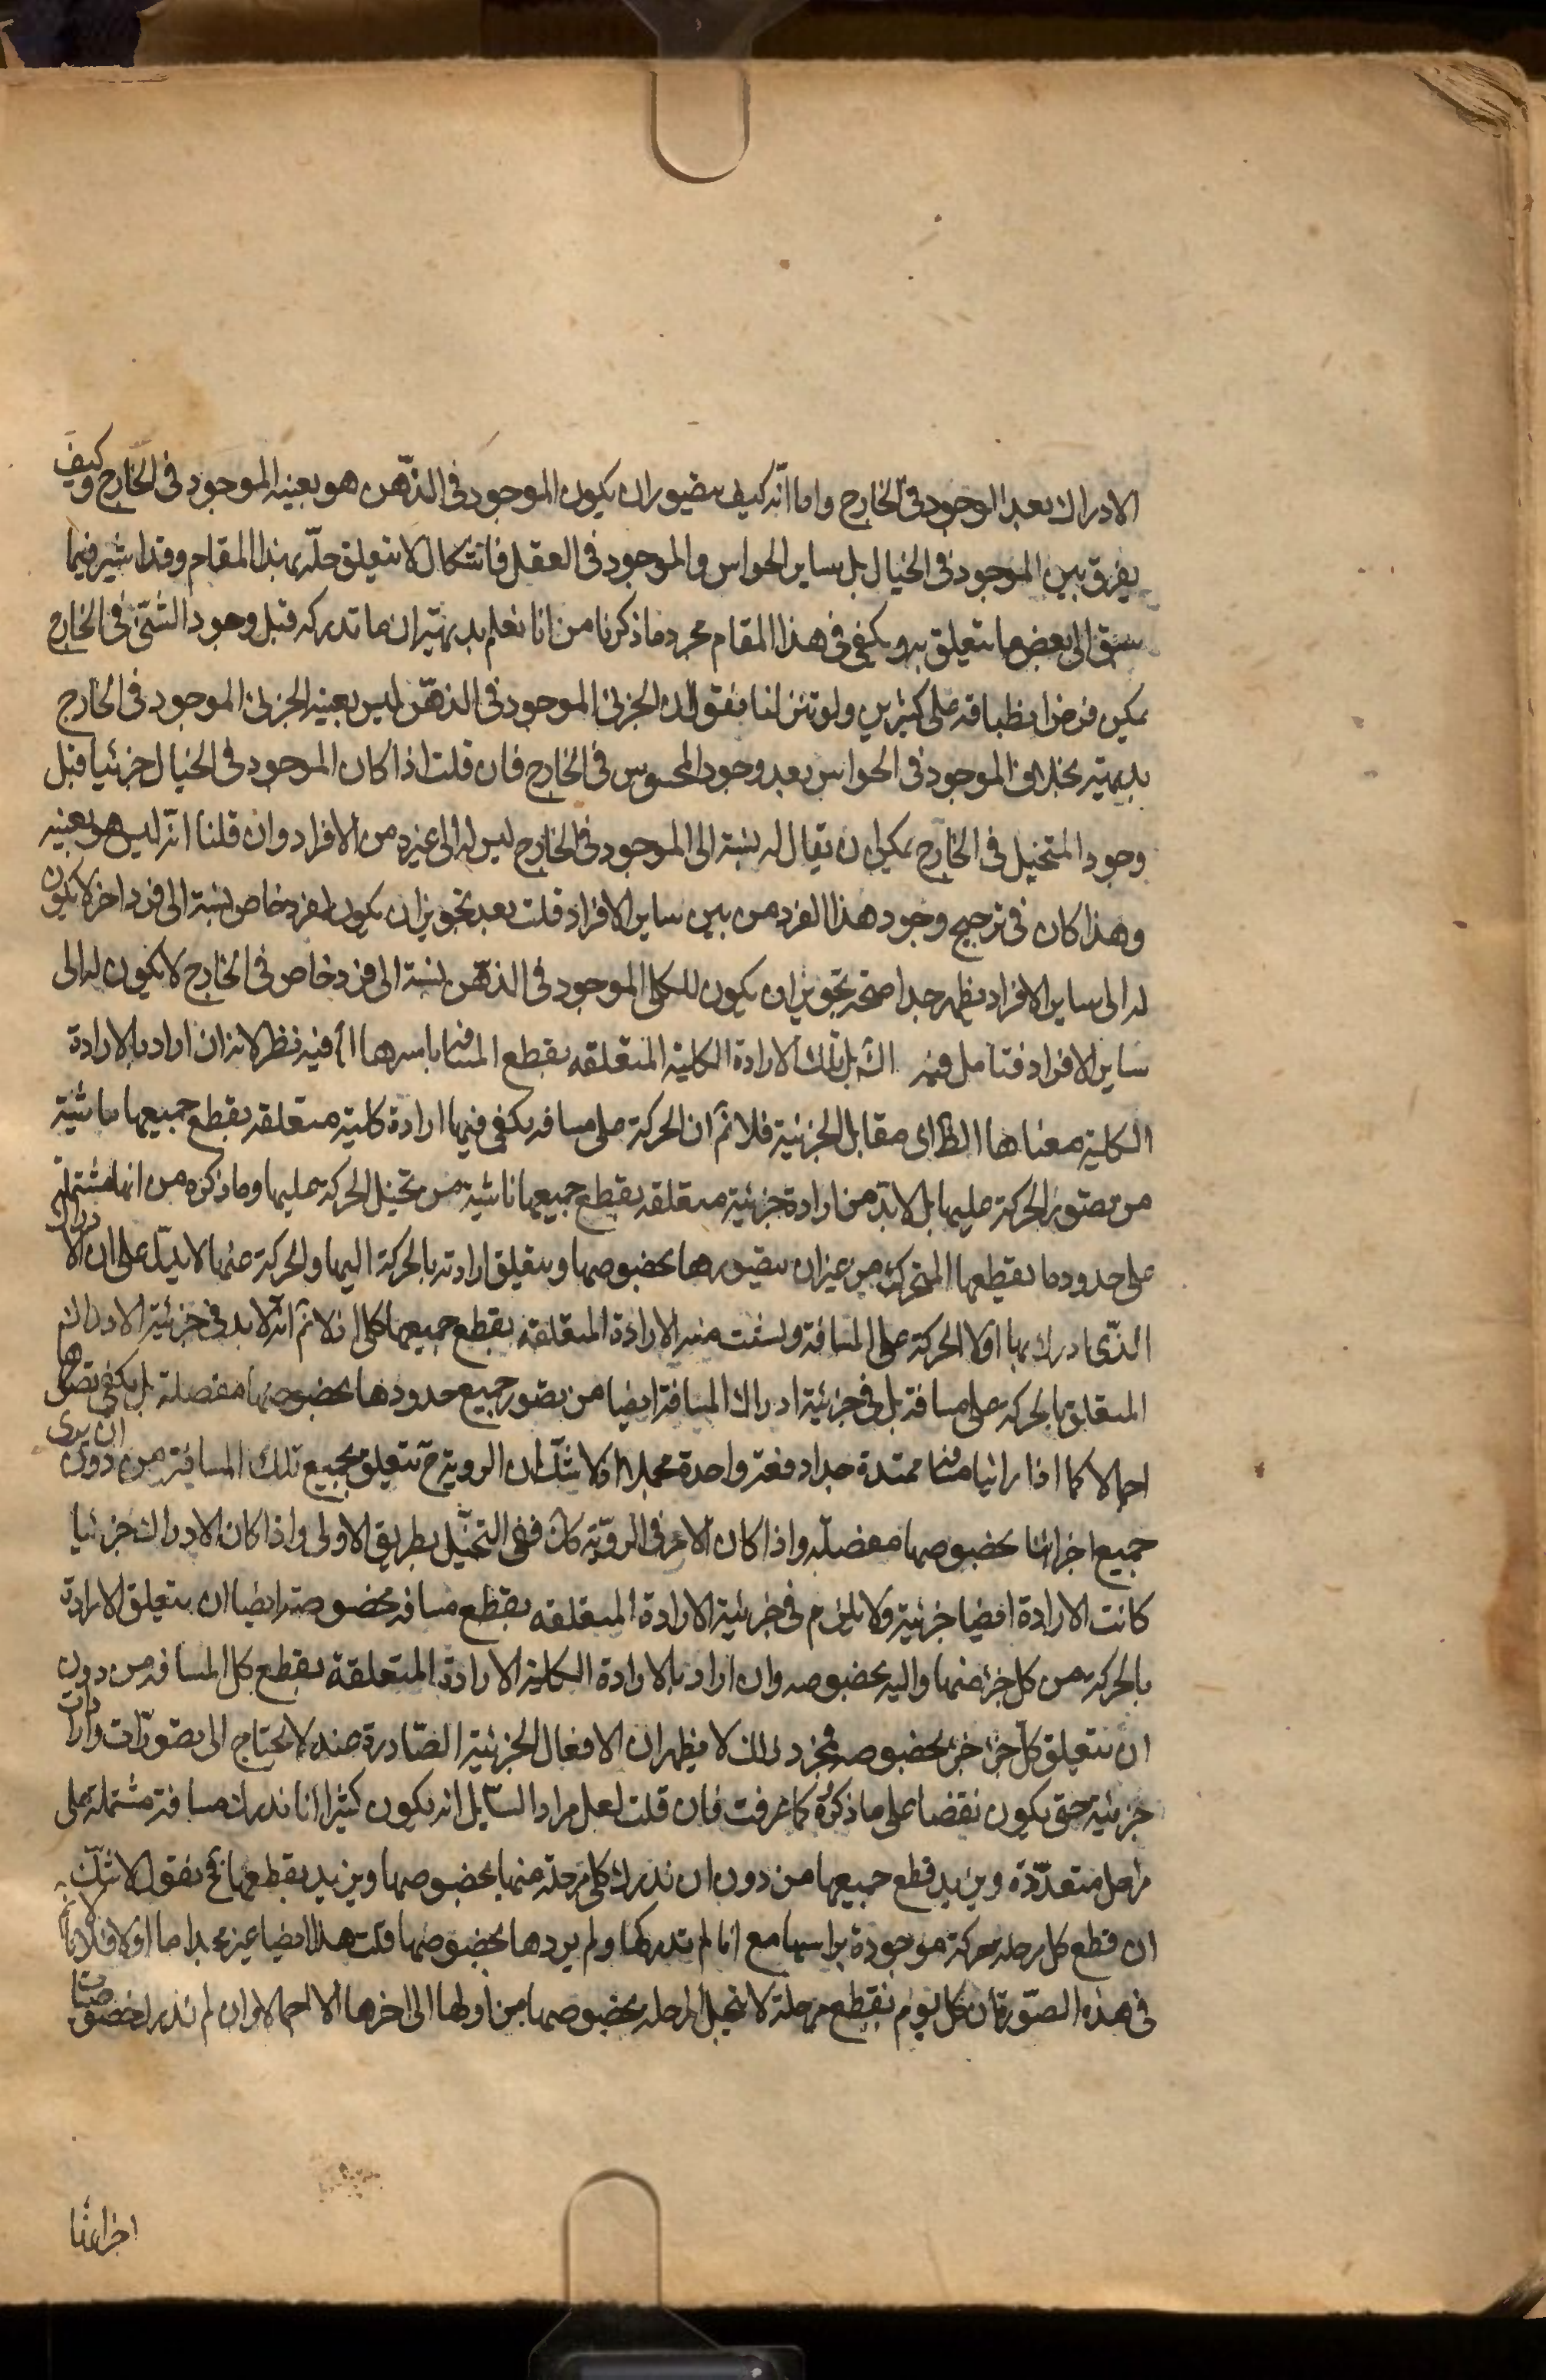 الادراك بعد الوجود فى الخارج واما انّه كيف يتصور ان يكون الموجود فى الذّهن هو بعينه الموجود فى الخارج وكيف
يفرق بين الموجود فى الخيال بل ساير الحواس والموجود فى العقل فاشكال لا يتعلق حلّه بهذا المقام وقد اشير فيما
سبق الى بعض ما يتعلق به ويكفى فى هذا المقام مجرد ما ذكرنا من انا نعلم بديهة ان ما ندركه قبل وجود الشئ فى الخارج
يمكن فرض انطباقه على كثيرين ولو تنزلنا فنقول ان الجزئى الموجود فى الذهّن ليس بعينه الجزئى الموجود فى الخارج
بديهة بخلاف الموجود فى الحواس بعد وجود المحسوس فى الخارج فان قلت اذا كان الموجود فى الخيال جزئيا قبل
وجود المتخيل فى الخارج يمكن ان يقال له نسبة الى الموجود فى الخارج ليس له الى غيره من الافراد وان قلنا انّه ليس هو بعينه
وهذا كان فى ترجيح وجود هذا الفرد من بين ساير الافراد قلت بعد تجويز ان يكون لفرد خاص نسبة الى فرد اخر لا يكون
له الى ساير الافراد يظهر جدا صحة تجويز ان يكون للكلى الموجود فى الذهّن نسبة الى فرد خاص فى الخارج لا يكون له الى
ساير الافراد فتامل فيه بل تلك الارادة الكلية المتعلقه بقطع المسافة باسرها اه فيه نظر لانه ان اراد بالارادة
الكلية معناها الظ اى مقابل الجزئية فلا نم ان الحركة على مسافه يكفى فيها ارادة كلية متعلقه بقطع جميعها ناشية
من تصور الحركة عليها بل لا بدّ من ارادة جزئية متعلقه بقطع جميعها ناشية من تخيل الحركة عليها وما ذكره من انها مشتملة
على حدود ما يقطعها المتحرك من غير ان يتصورها بخصوصها ويتعلق ارادته بالحركة اليها والحركة عنها لا يدلّ على ان الادراك
الذّى ادرك بها اولا الحركة على المسافة ونشئت منه الارادة المتعلقه بقطع جميعها كلى اذ لا نم انّه لا بد فى جزئية الادراك
المتعلق بالحركه على مسافة بل فى جزئية ادراك المسافة ايضا من تصور جميع حدودها بخصوصها مفصلة بل يكفى تصورها
اجمالا كما اذا راينا مسافة ممتدة جدا دفعة واحدة مجملا اذ لا شك ان الروية ح تتعلق بجميع تلك المسافة من دون ان يرى
جميع اجزائها بخصوصها مفصلّه واذا كان الامر فى الرويّة كك ففى التخيّل بطريق الاولى واذا كان الادراك جزئيا
كانت الارادة ايضا جزئية ولا يلزم فى جزئية الارادة المتعلقه بقطع مسافه مخصوصة ايضا ان يتعلق الارادة
بالحركه من كل جزء منها واليه بخصوصه وان اراد بالارادة الكلية الارادة المتعلقة بقطع كل المسافه من دون
ان تتعلق كلّ جزء جزء بخصوصه فمجرد ذلك لا يظهر ان الافعال الجزئية الصّادرة عنه لا يحتاج الى تصورّات وارادات
جزئية حتى يكون نقضا على ما ذكره كما عرفت فان قلت لعل مراد السّايل انه يكون كثيرا انا ندرك مسافة مشتملة على
مراحل متعدّدة ونريد قطع جميعها من دون ان ندرك كل مرحلة منها بخصوصها ونريد قطعها فح نقول لا شكّ
ان قطع كل مرحله حركة موجودة براسها مع انا لم ندركها ولم نردها بخصوصها قلت هذا ايضا غير مجد اما اولا فلانا
فى هذه الصّورة ان كل يوم نقطع مرحلة لا نتخيل المرحله بخصوصها من اولها الى اخرها الا اجمالا وان لم ندرك خصوصيات
اجزائها